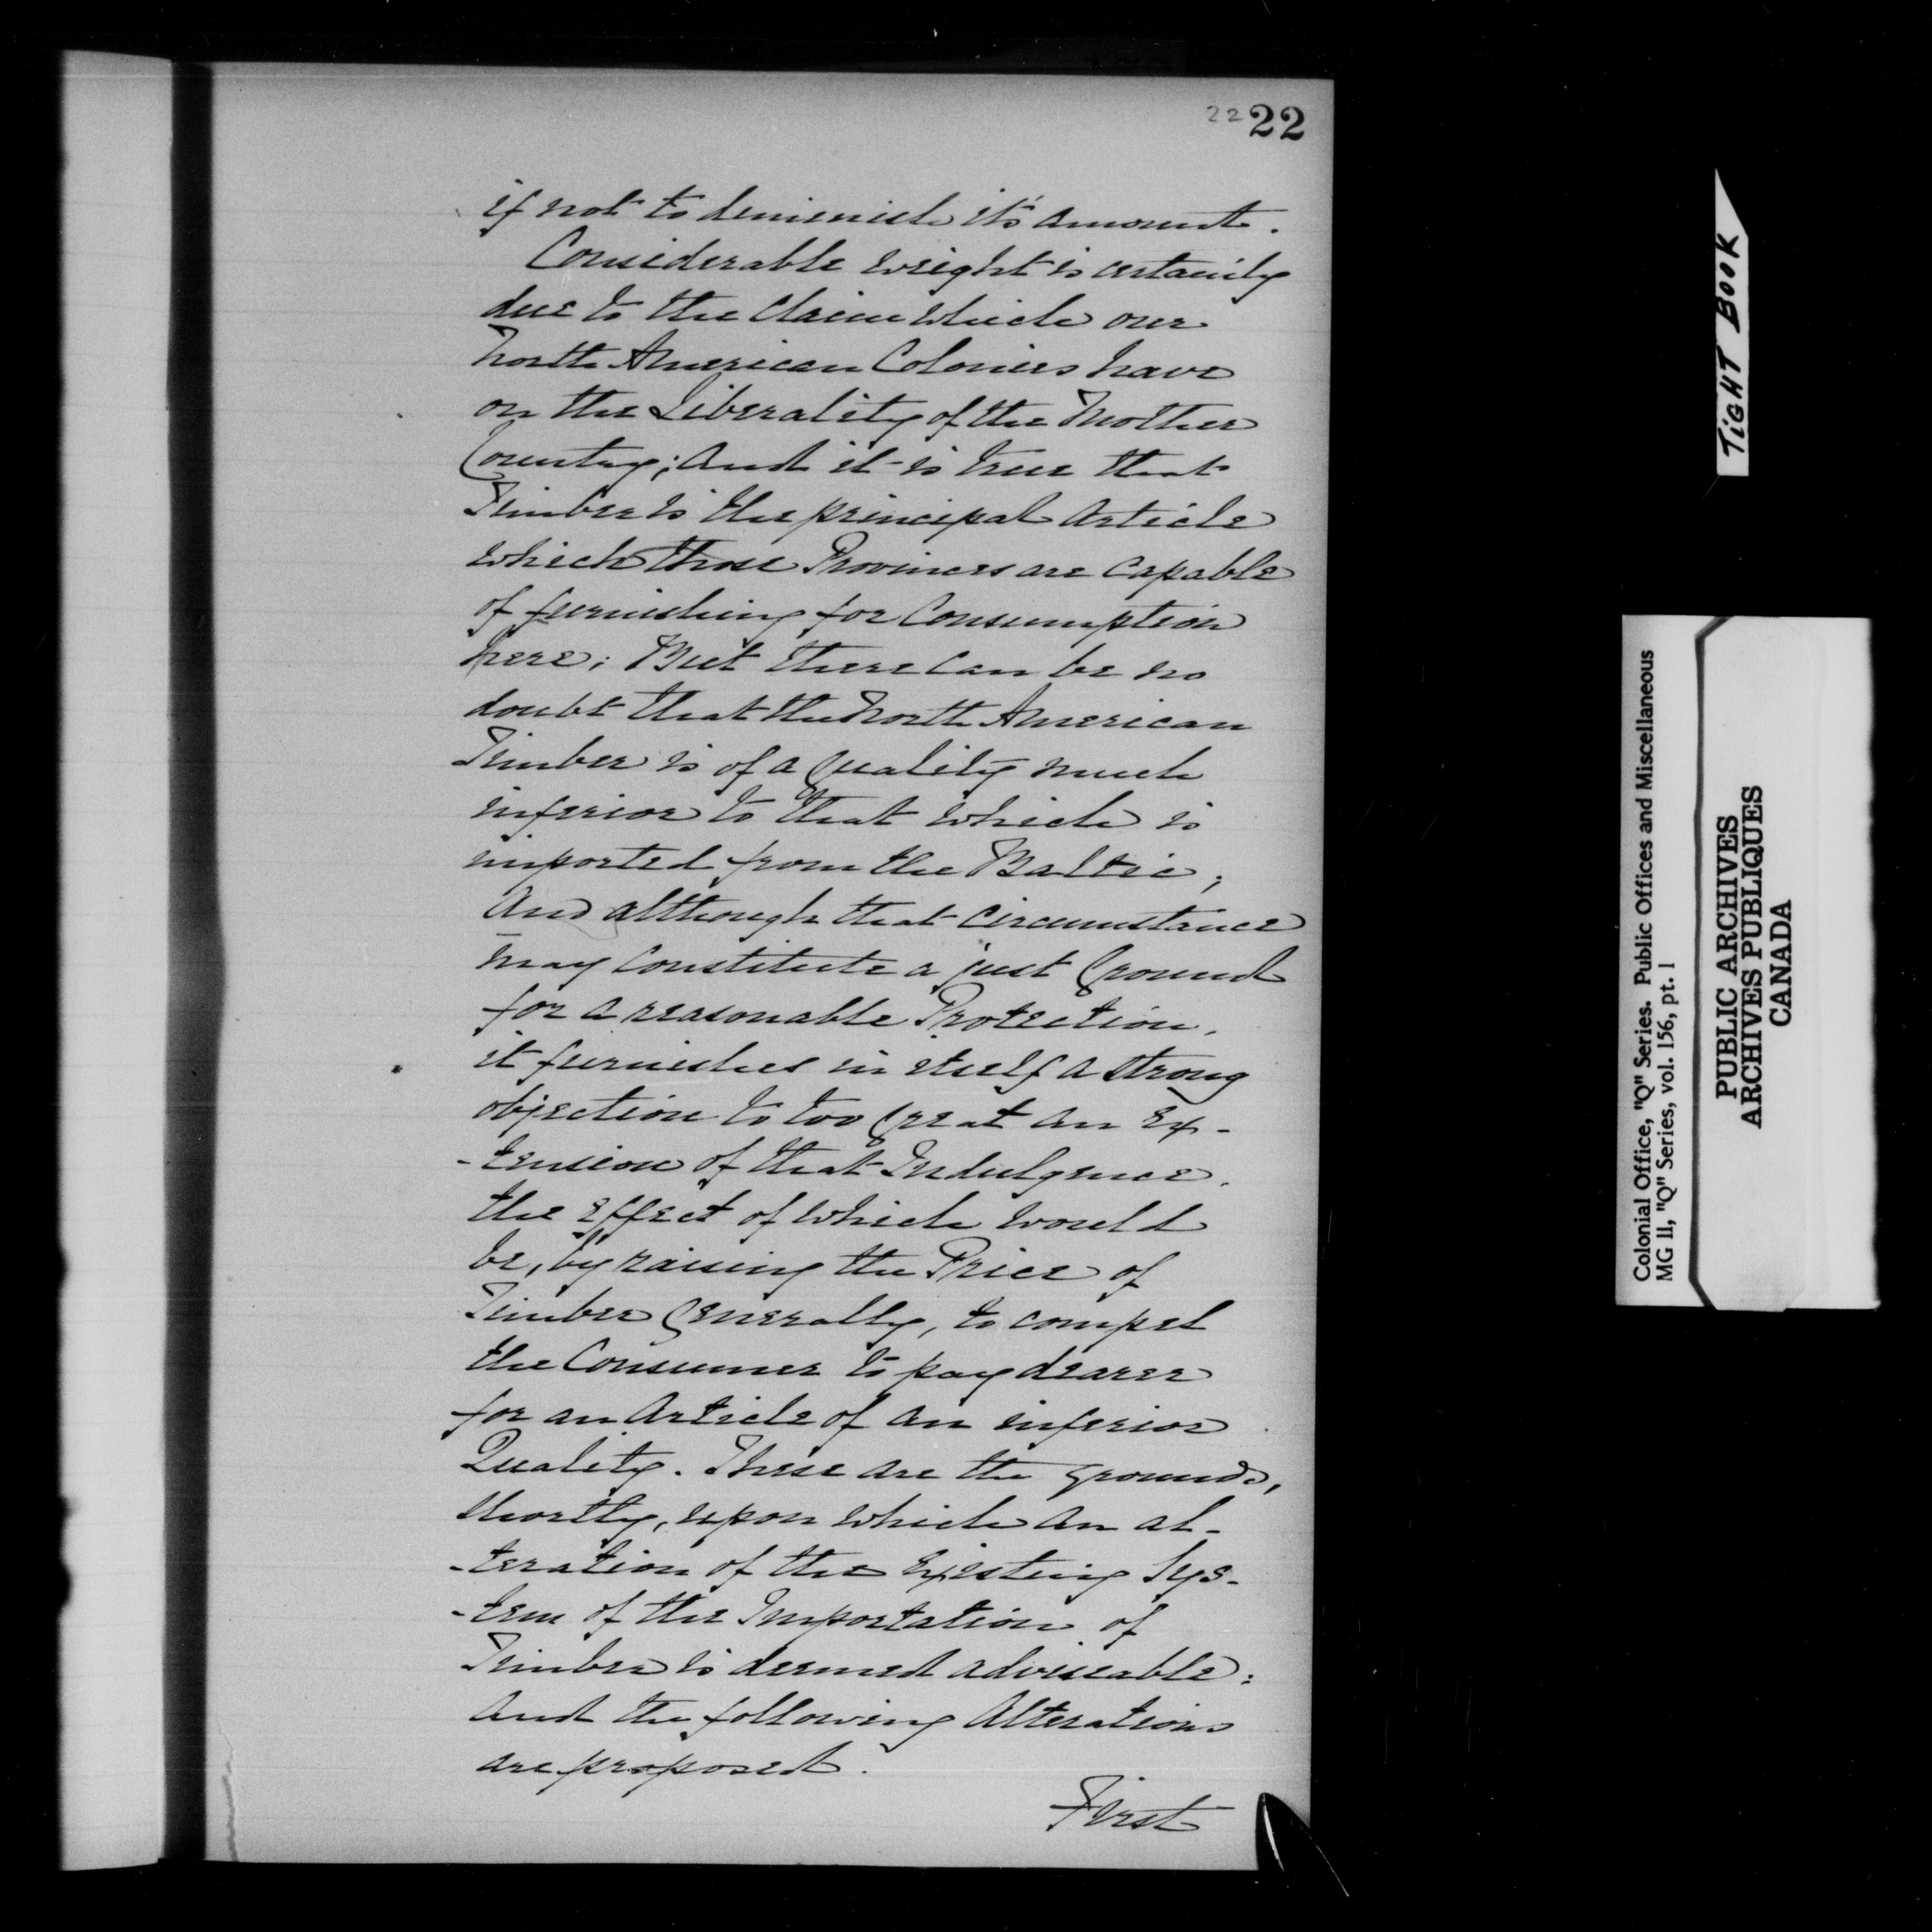 22 22
if not to diminish it's amount.
Considerable weight is certainly
due to the claim which our
North American Colonies have
on the Liberality of the Mother
Country; and it is true that
Timber is the principal Article
which those Provinces are capable
of furnishing for Consumption
here; But there can be no
doubt that the North American
Timber is of a Quality much
inferior to that which is
imported from the Baltic;
And although that circumstance
may constitute a just Ground
for a reasonable Protection,
it furnishes in itself a strong
objection to too great an Ex-
-tension of that Indulgence,
the Effect of which would
be, by raising the Price of
Timber Generally, to compel
the Consumer to pay dearer
for an Article of an inferior
Quality. These are the grounds,
shortly, upon which an al-
-teration of the Existing Sys-
-tem of the Importation of
Timber is deemed adviseable:
And the following Alterations
are proposed.
First
TIGHT BOOK
Colonial Office, "Q" Series. Public Offices and Miscellaneous
MG 11, "Q" Series, vol. 156, pt. 1
PUBLIC ARCHIVES
ARCHIVES PUBLIQUES
CANADA